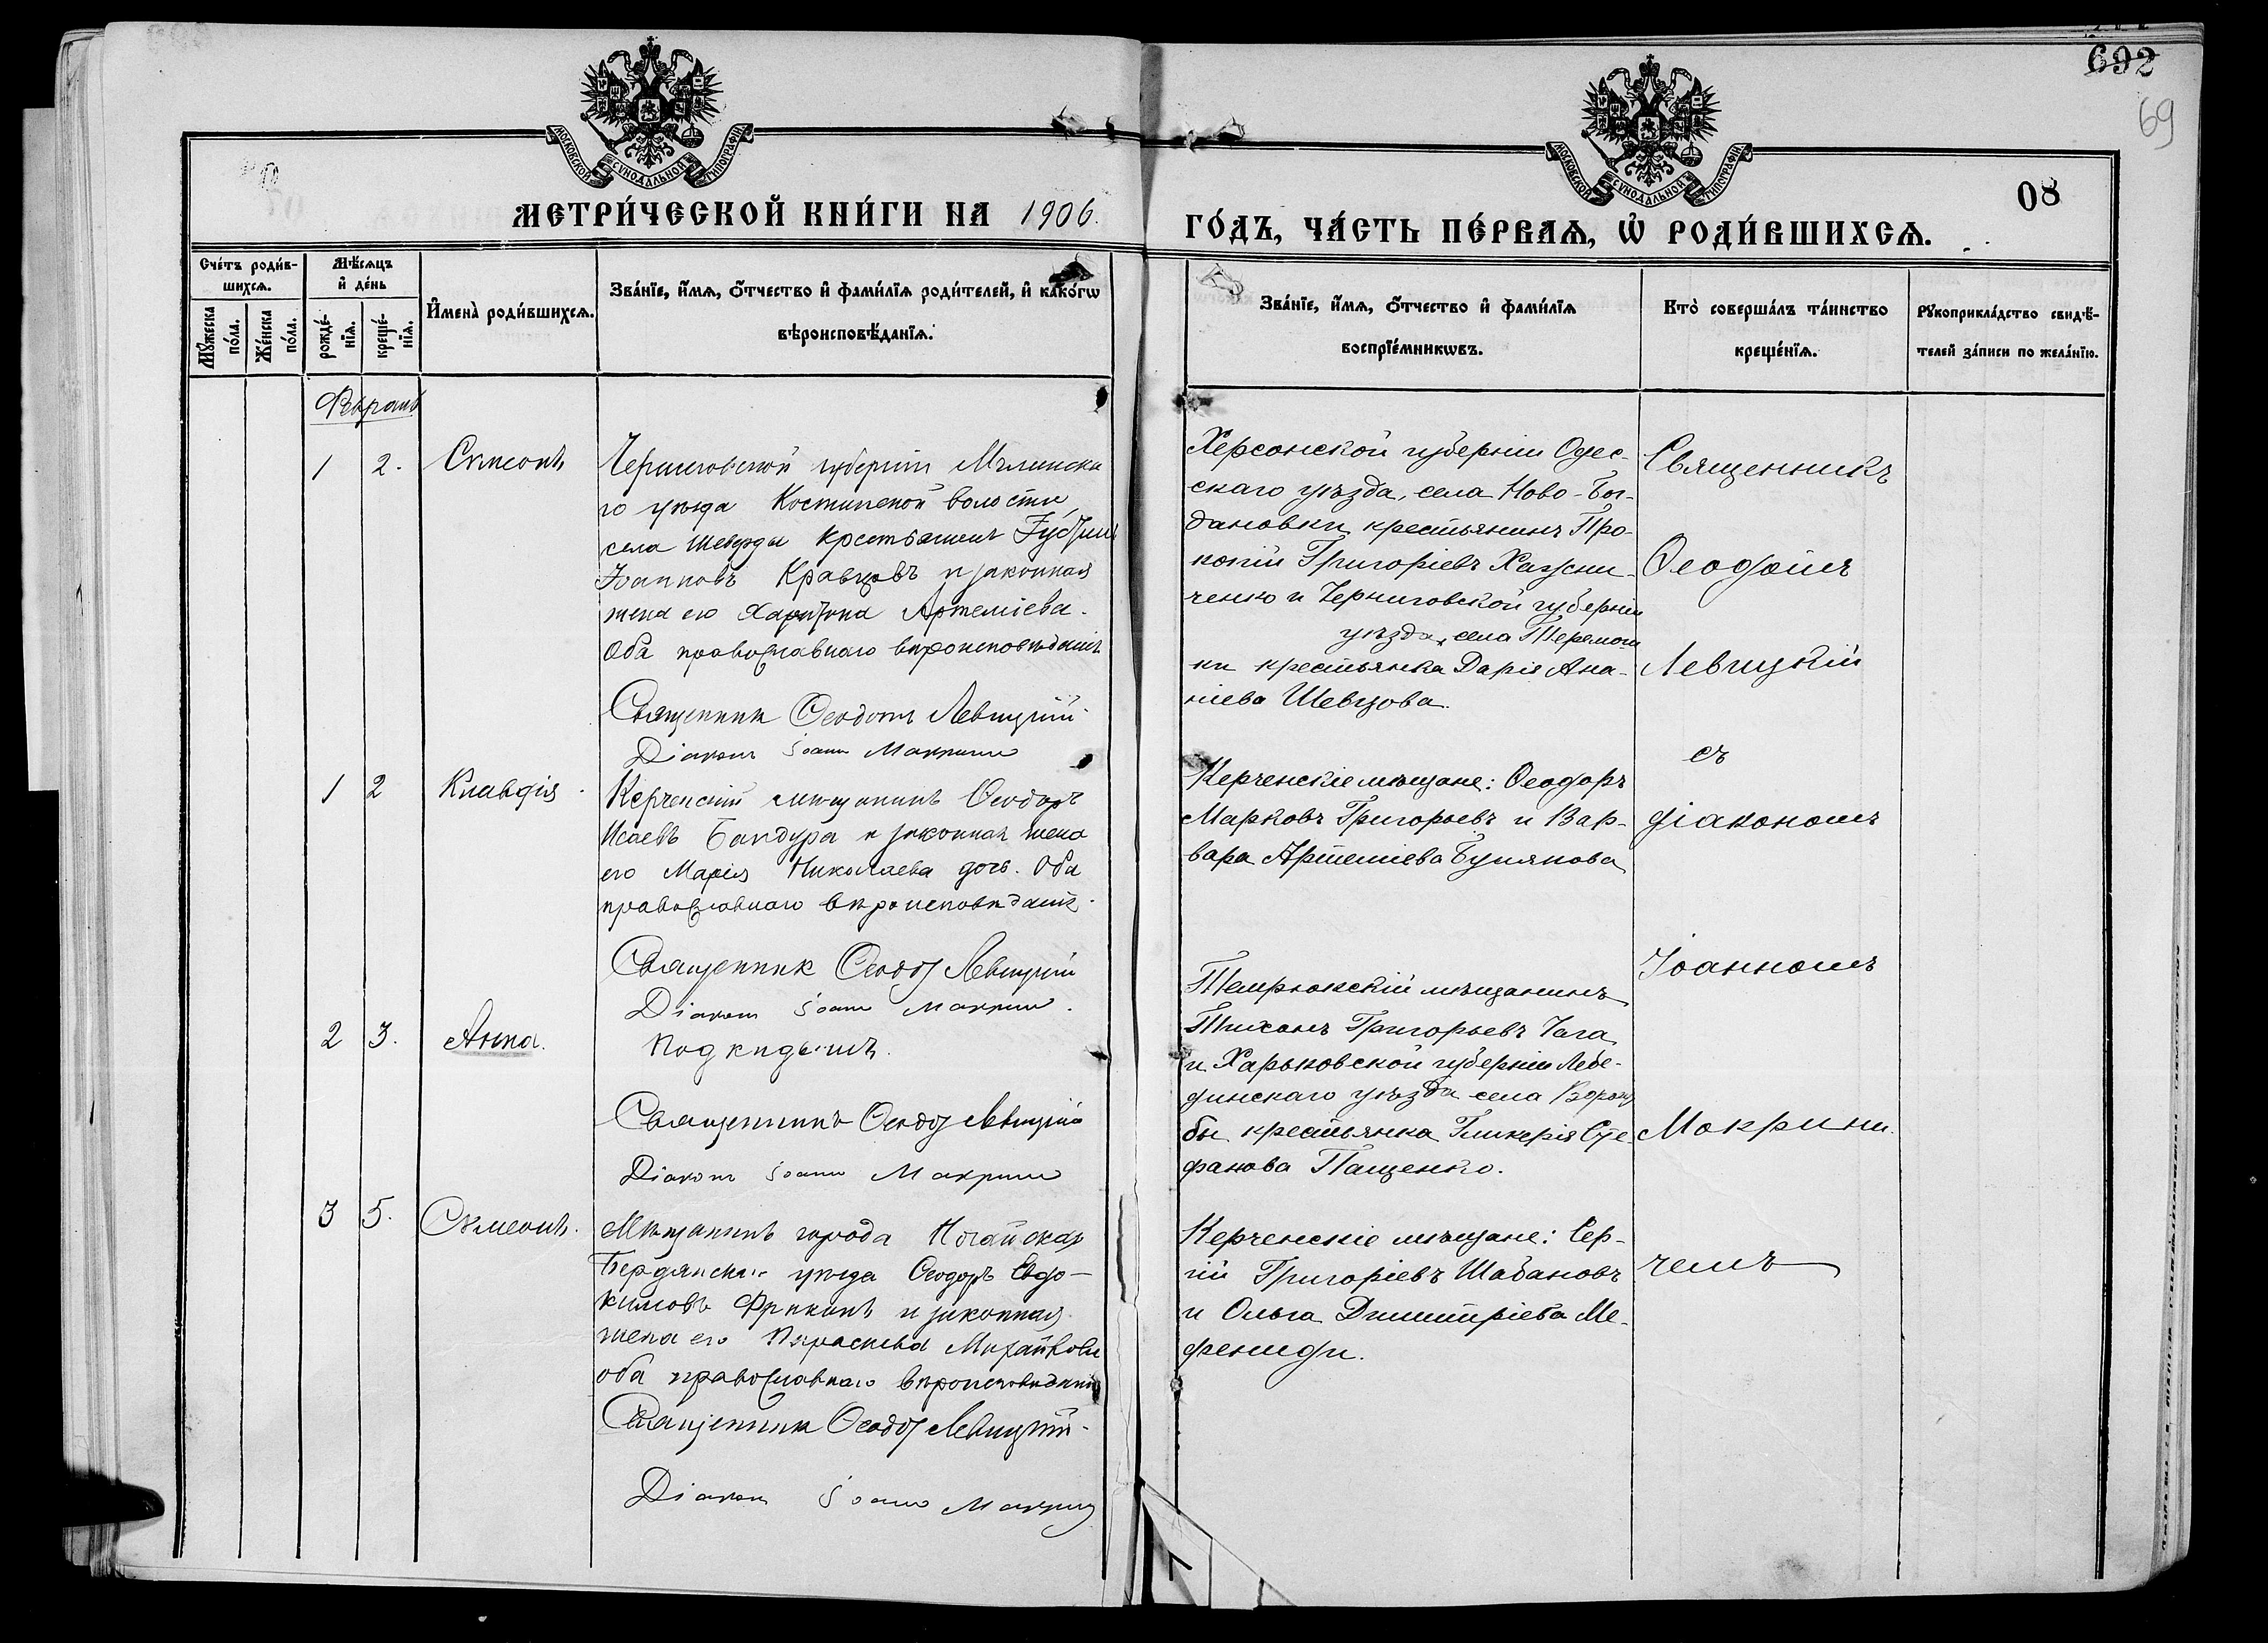 692
69
08
МОСКОВСКОЙ СѴНОДАЛЬНОЙ ТИПОГРАФІИ
МОСКОВСКОЙ СѴНОДАЛЬНОЙ ТИПОГРАФІИ
МЕТРИ́ЧЕСКОЙ КНИ́ГИ НА 1906.
ГО́ДЪ, ЧА́СТЬ ПЕ́РВАѦ, Ѡ҆ РОДИ́ВШИХСѦ.
Сче́тъ роди́в-
шихсѧ.
Мꙋ́жеска
по́ла.
Же́нска
по́ла.
Мѣ́сѧцъ
и҆ де́нь
рожде́-
нїѧ.
креще́-
нїѧ.
И҆мена̀ роди́вшихсѧ.
Зва́нїе, и҆́мѧ, ѻ҆́тчество и҆ фами́лїѧ роди́телей, и҆ како́гѡ
вѣроисповѣ́данїѧ.
Зва́нїе, и҆́мѧ, ѻ҆́тчество и҆ фами́лїѧ
воспрїе́мникѡвъ.
Кто̀ соверша́лъ та́инство
креще́нїѧ.
Рꙋкоприкла́дство свидѣ́-
телей за́писи по жела́нїю.
1 2. Сѵмеонъ
Черниговской губерніи Мглинска
го уѣзда волости,
села крестьянинъ
Іоанновъ Кравцовъ и законная
жена его Харитина Артеміева.
Оба православнаго вѣроисповѣданія
Священникъ Ѳеодоръ Левицкій
Діаконъ Іоаннъ Макрини
Херсонской губерніи Одес-
скаго уѣзда, села Ново-Бог-
дановки крестьянинъ Про-
копій Григоріевъ
ченко и Черниговской губерніи
уѣзда, села
ки крестьянка Дарія Ана-
ніева Шевцова.
1 2 Клавдія.
Керченскій мѣщанинъ Ѳеодоръ
Исаевъ Бандура и законная жена
его Марія Николаева дочь. Оба
православнаго вѣроисповѣданія.
Священникъ Ѳеодоръ Левицкій
Діаконъ Іоаннъ Макрини.
Керченскіе мѣщане: Ѳеодоръ
Марковъ Григорьевъ и Вар-
вара Артеміева
2 3. Анна.
Подкидышъ.
Священникъ Ѳеодоръ Левицкій
Діаконъ Іоаннъ Макрини
Темрюкскій мѣщанинъ
Тихонъ Григорьевъ Чага
и Харьковской губерніи Лебе-
динскаго уѣзда села Ворож
бы крестьянка Гликерія Сте-
фанова Пащенко.
3 5. Сѵмеонъ.
Мѣщанинъ города Ногайска
Бердянскаго уѣзда Ѳеодоръ Евдо-
кимовъ и законная
жена его Параскева Михайлова
оба православнаго вѣроисповѣданія
Священникъ Ѳеодоръ Левицкій.
Діаконъ Іоаннъ Макрини
Керченскіе мѣщане: Сер-
гій Григоріевъ Шабановъ
и Ольга Димитріева Ме-
фениди.
Священникъ
Ѳеодоръ
Левицкій
съ
діакономъ
Іоанномъ
Макрини.